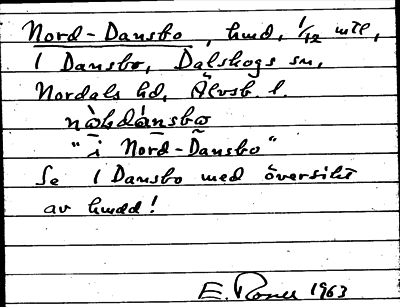 Nord-Dansbo, hmd, 1/12 mtl,
1 Dansbo, Dalskogs sn,
Nordals hd, Älvsb. l.
nòḷdánsbo
"i Nord-Dansbo"
Se 1 Dansbo med översikt
av hmdd!
E. Rosell 1963